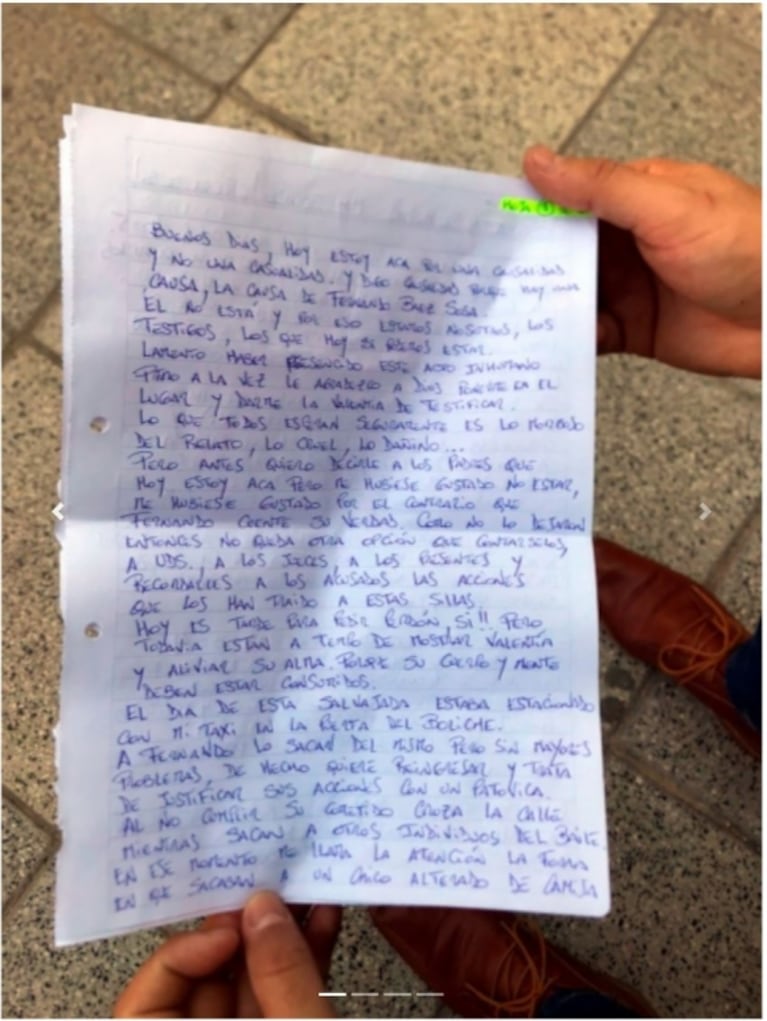 Hoja 1
BUENOS DIAS, HOY ESTOY ACA POR UNA CAUSALIDAD
Y NO UNA CASUALIDAD. Y DIGO CAUSALIDAD PORQUE HAY UNA
CAUSA, LA CAUSA DE FERNANDO BAEZ SOSA
EL NO ESTA Y POR ESO ESTAMOS NOSOTROS, LOS
TESTIGOS, LOS QUE HOY SI PODEMOS ESTAR.
LAMENTO HABER PRESENCIDO ESTE ACTO INHUMANO
PERO A LA VEZ LE AGRADEZCO A DIOS PONERME EN EL
LUGAR Y DARME LA VALENTIA DE TESTIFICAR.
LO QUE TODOS ESPERAN SEGURAMENTE ES LO MORBOSO
DEL RELATO, LO CRUEL, LO DAÑINO...
PERO ANTES QUIERO DECIRLE A LOS PADRES QUE
HOY ESTOY ACA PERO ME HUBIESE GUSTADO NO ESTAR,
ME HUBIESE GUSTADO POR EL CONTRARIO QUE
FERNANDO CUENTE SU VERDAD. COMO NO LO DEJARON
ENTONCES NO QUEDA OTRA OPCIÓN QUE CONTARSELOS,
A UDS., A LOS JUECES, A LOS PRESENTES Y
RECORDARLES A LOS ACUSADOS LAS ACCIONES
QUE LOS HAN TRAIDO A ESTAS SILLAS.
HOY ES TARDE PARA PEDIR PERDÓN, SI!! PERO
TODAVIA ESTAN A TIEMPO DE MOSTRAR VALENTIA
Y ALIVIAR SU ALMA. PORQUE SU CUERPO Y MENTE
DEBEN ESTAR CONSUMIDOS.
EL DIA DE ESTA SALVAJADA ESTABA ESTACIONADO
CON MI TAXI EN LA PUERTA DEL BOLICHE.
A FERNANDO LO SACAN DEL MISMO PERO SIN MAYORES
PROBLEMAS, DE HECHO QUIERE REINGRESAR Y TRATA
DE JUSTIFICAR SUS ACCIONES CON UN PATOVICA.
AL NO CUMPLIR SU COMETIDO CRUZA LA CALLE
MIENTRAS SACAN A OTROS INDIVIDUOS DEL BAILE.
EN ESE MOMENTO ME LLAMA LA ATENCIÓN LA FORMA
EN QUE SACABAN A UN CHICO ALTERADO DE CAMISA